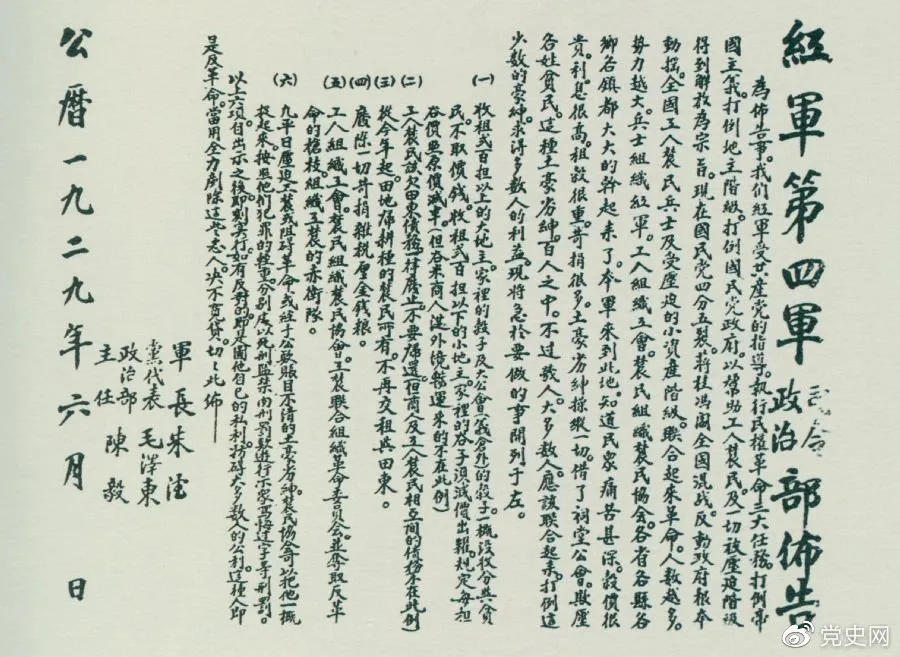 紅軍第四軍司令政治部佈告
為佈告事。我們紅軍受共產党的指導，執行民權革命三大任務，打倒帝
國主義，打倒地主階級，打倒國民党政府，以幫助工人農民及一切被壓迫階級
得到解放為宗旨。現在國民党四分五裂，蔣桂馮閻全國混战，反動政府根本
動摇。全國工人農民兵士及受壓迫的小資產階級，联合起來革命，人數越多，
势力越大。兵士組織紅軍，工人組織工會，農民組織農民協会，各省各縣各
鄉各鎮都大大的幹起來了。本軍來到此地，知道民眾痛苦甚深，穀價很
貴，利息很高，租穀很重，苛捐很多。土豪劣紳操縱一切，借了祠堂公會，欺壓
各姓貧民。這種土豪劣紳，百人之中，不过數人，大多數人，應該联合起來，打倒這
少數的豪紳，求得多數人的利益。現將急於要做的事開列于左。
(一) 收租弍百担以上的大地主，家裡的穀子及大公會（義倉外）的穀子，一概沒收分與貧
民，不取價錢。收租弍百担以下的小地主，家裡的谷子須減價出糶，規定每担
谷價照原價減半。（但谷米商人從外境輸運來的不在此例）
(二) 工人農民該欠田東債務，一律廢止，不要歸還。（但商人及工人農民相互間的債務不在此例）
(三) 從今年起，田地歸耕種的農民所有，不再交租與田東。
(四) 廢除一切苛捐雜稅厘金錢粮。
(五) 工人組織工會，農民組織農民協會，工農联合組織革命委員会，並奪取反革
命的槍枝，組織工農的赤衛隊。
(六) 凡平日壓迫工農或阻碍革命，或經手公欵賬目不清的土豪劣紳，農民協會可以把他一概
捉起來，按照他們犯罪的輕重，分別處以死刑監禁肉刑罰欵遊行示眾寫悔过字等刑罰。
以上六項，自出示之後，即刻实行。如有反對的，即是圖他自己的私利，妨碍大多數人的公利，這種人即
是反革命，當用全力剷除這些恶人，决不寬貸。切切此佈
軍長 朱德
黨代表 毛澤東
政治部主任 陳毅
公曆一九二九年六月 日
党史网